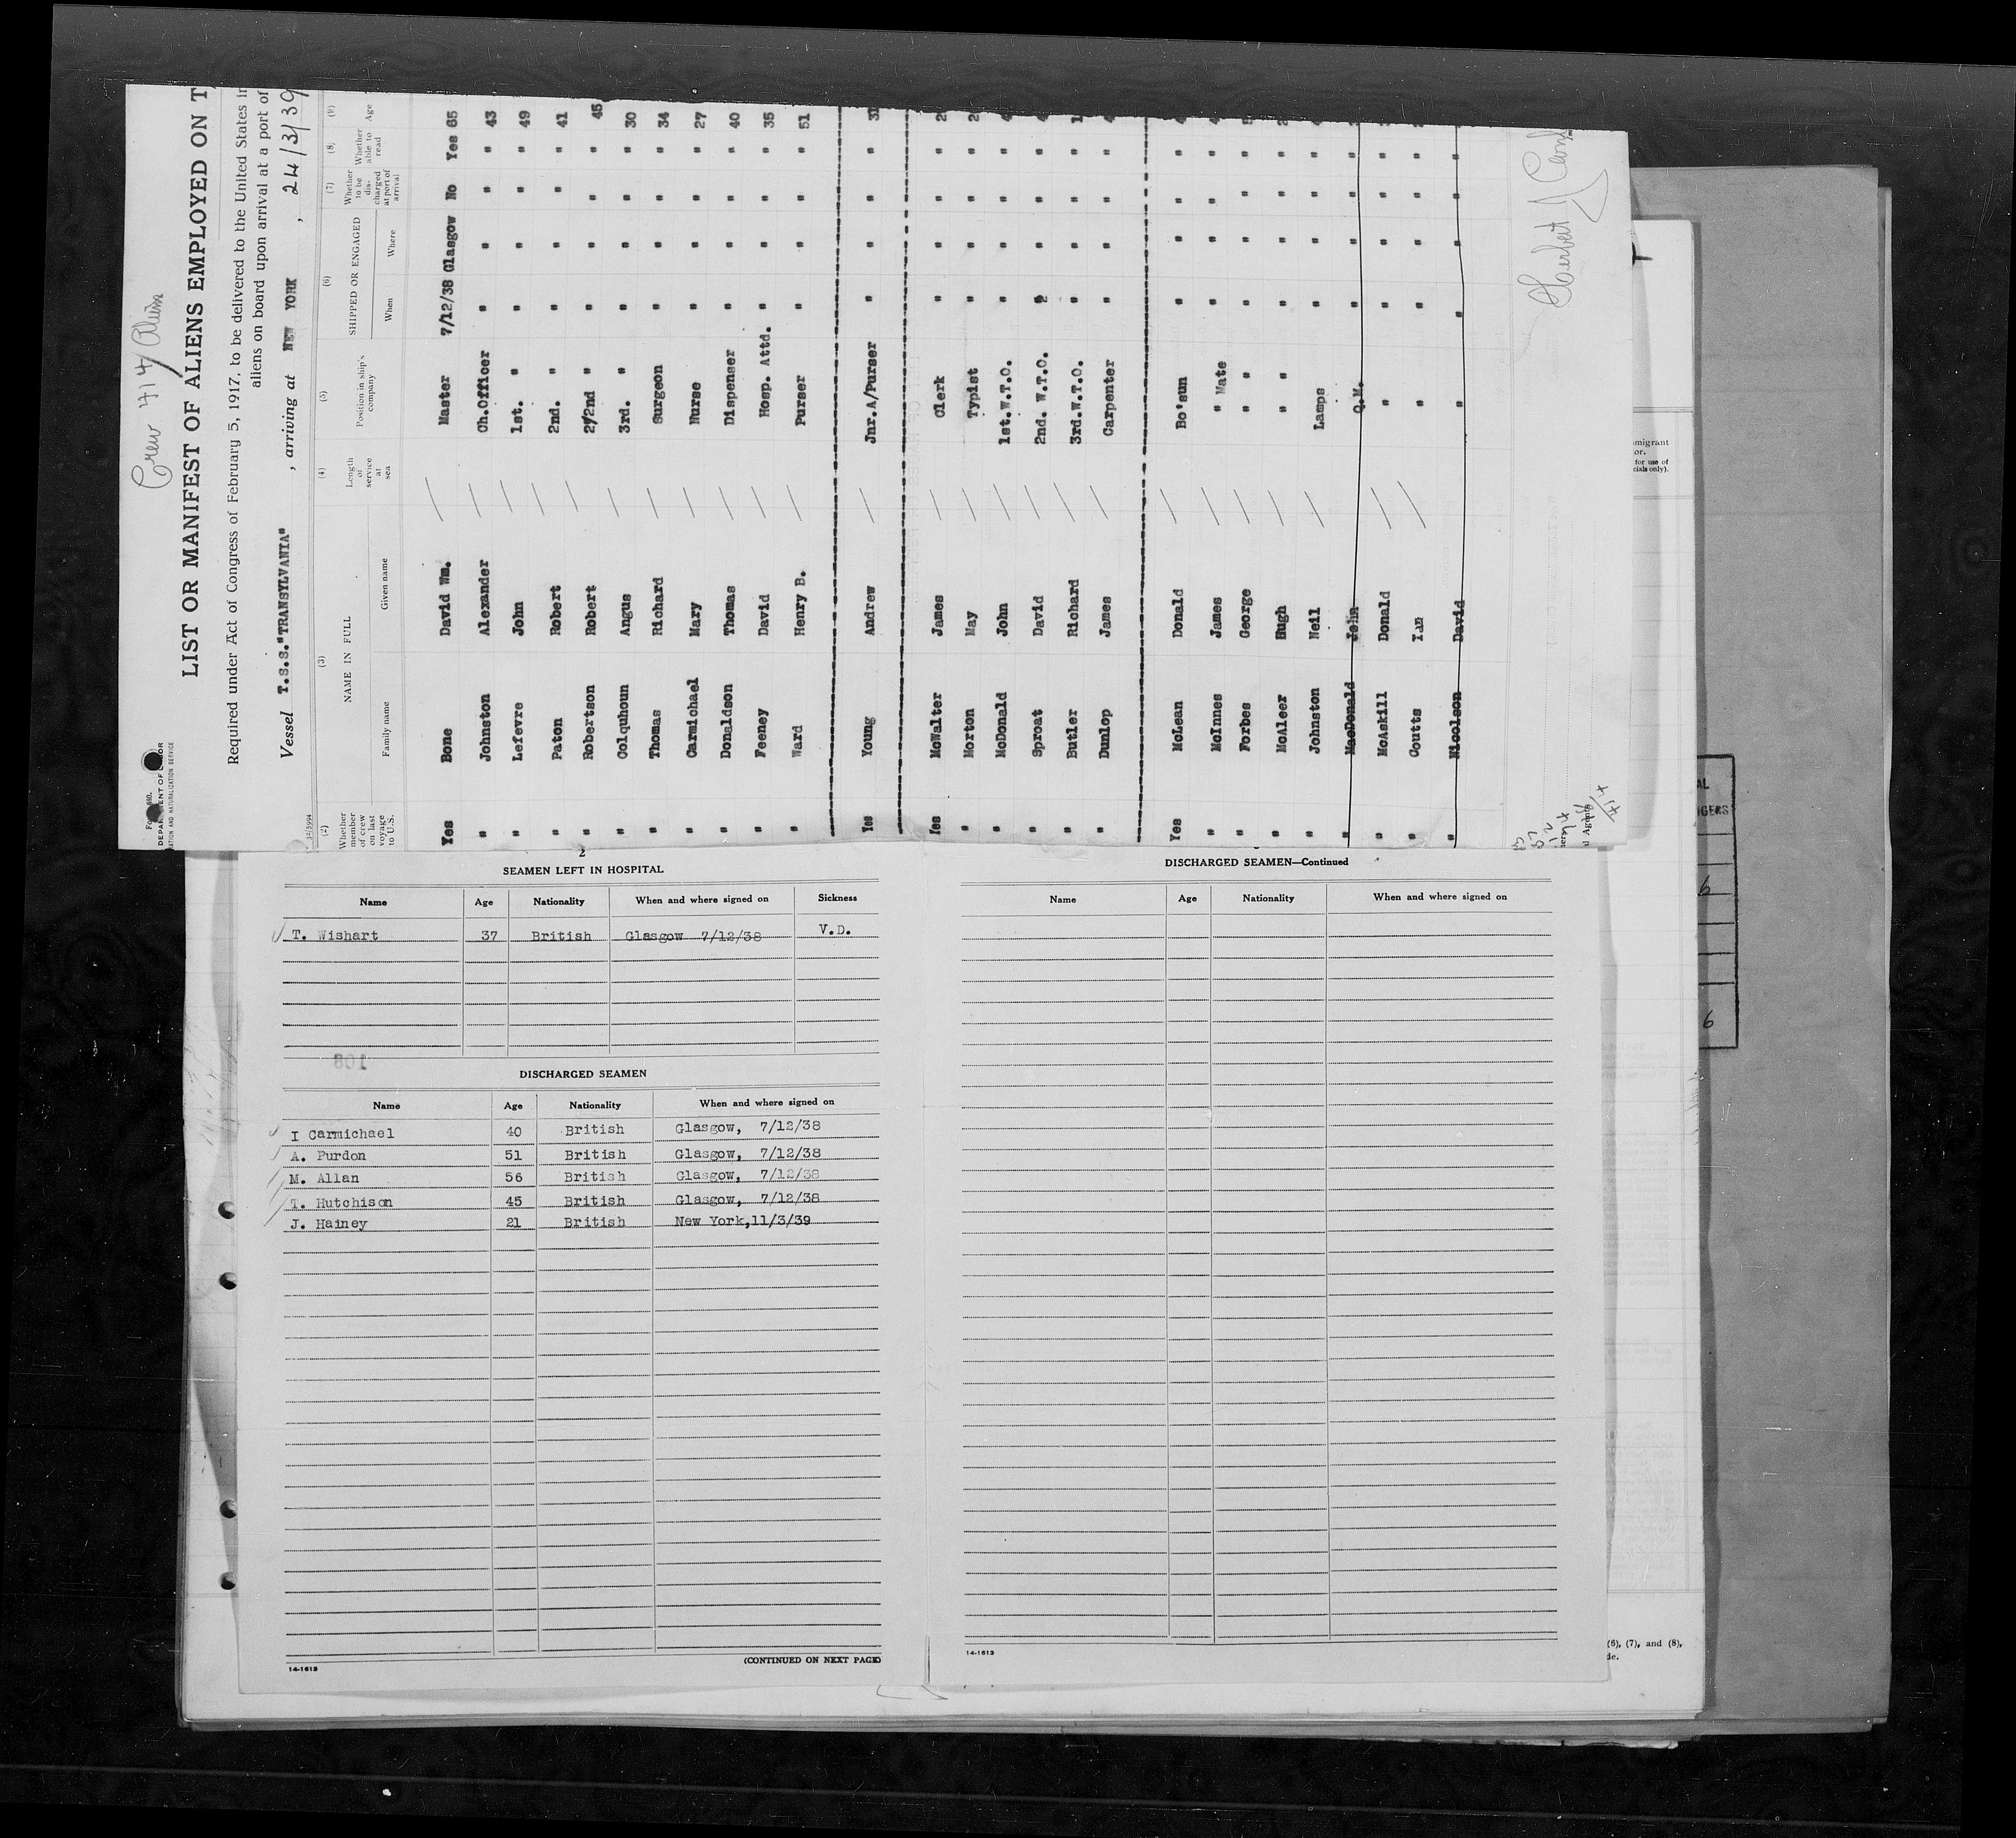 Crew 414 Aliens
LIST OR MANIFEST OF ALIENS EMPLOYED ON T
Required under Act of Congress of February 5, 1917, to be delivered to the United States
aliens on board upon arrival at a port of
Vessel T.S.S."TRANSYLVANIA" , arriving at NEW YORK , 24/3/39
(2) (3) (4) (5) (6) (7) (8) (9)
Whether member of crew on last voyage to U.S. NAME IN FULL Family name Given name Length of service at sea Position in ship's company SHIPPED OR ENGAGED When Where Whether to be discharged at port of arrival Whether able to read Age
Yes Bone David Wm. Master 7/12/38 Glasgow No Yes 65
" Johnston Alexander Ch.Officer " " " " 43
" Lefevre John 1st. " " " " " 49
" Paton Robert 2nd. " " " " " 41
" Robertson Robert 2/2nd " " " " " 45
" Colquhoun Angus 3rd. " " " " " 30
" Thomas Richard Surgeon " " " " 34
" Carmichael Mary Nurse " " " " 27
" Donaldson Thomas Dispenser " " " " 40
" Feeney David Hosp. Attd. " " " " 35
" Ward Henry B. Purser " " " " 51
Yes Young Andrew Jnr.A/Purser " " " " 31
Yes McWalter James Clerk " " " "
" Morton May Typist " " " "
" McDonald John 1st.W.T.O. " " " "
" Sproat David 2nd. W.T.O. " " " "
" Butler Richard 3rd.W.T.O. " " " "
" Dunlop James Carpenter " " " "
Yes McLean Donald Bo'sun " " " "
" McInnes James " Mate " " " "
" Forbes George " " " " " "
" McAleer Hugh " " " " " "
" Johnston Neil Lamps " " " "
" MacDonald John Q.M. " " " "
" McAskill Donald " " " " "
" Coutts Ian " " " " "
" Nicolson David " " " " "
Herbert J
2
SEAMEN LEFT IN HOSPITAL
Name Age Nationality When and where signed on Sickness
T. Wishart 37 British Glasgow 7/12/38 V.D.
108
DISCHARGED SEAMEN
Name Age Nationality When and where signed on
I Carmichael 40 British Glasgow, 7/12/38
A. Purdon 51 British Glasgow, 7/12/38
M. Allan 56 British Glasgow, 7/12/38
T. Hutchison 45 British Glasgow, 7/12/38
J. Hainey 21 British New York,11/3/39
14-1613
(CONTINUED ON NEXT PAGE)
DISCHARGED SEAMEN—Continued
Name Age Nationality When and where signed on
14-1613
migrant
or.
for use of
cials only).
AL
NGERS
6
6
(6), (7), and (8),
de.